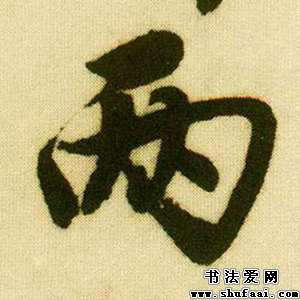 两
书法爱网
www.shufaai.com